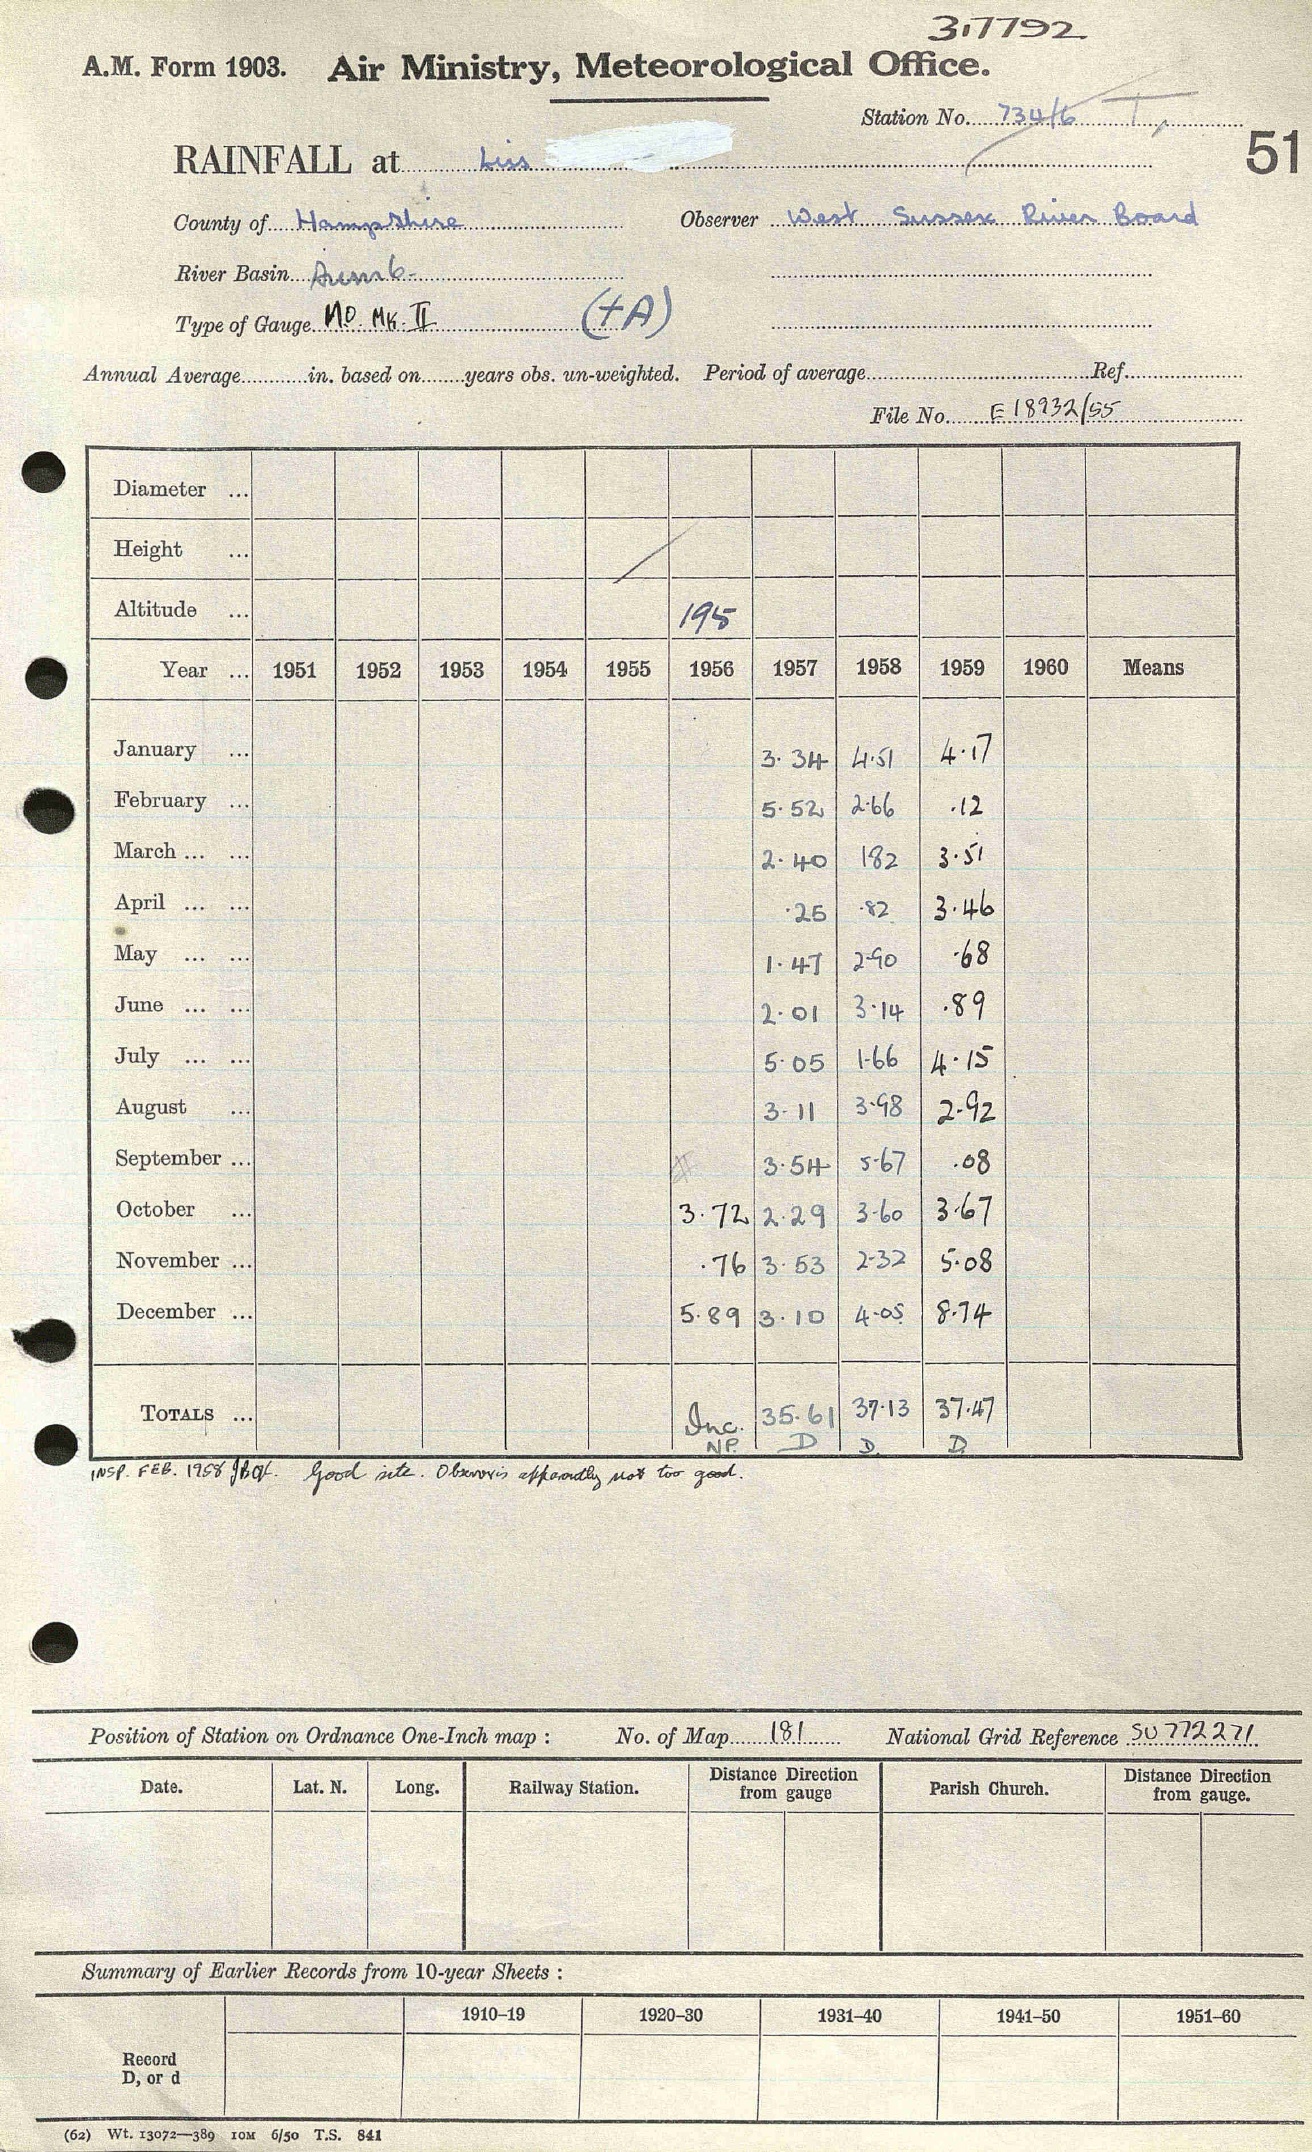 3.7792
A.M. Form 1903. Air Ministry, Meteorological Office.
Station No. 734/6 T,
51
RAINFALL at Liss
County of Hampshire Observer West Sussex River Board
River Basin
Type of Gauge MO. MK. II (+A)
Annual Average in. based on years obs. un-weighted. Period of average Ref.
File No. E18932/55
Diameter ...
Height ...
Altitude ... 195
Year ... 1951 1952 1953 1954 1955 1956 1957 1958 1959 1960 Means
January ... 3.34 4.51 4.17
February ... 5.52 2.66 .12
March ... ... 2.40 182 3.51
April ... ... .25 .82 3.46
May ... ... 1.47 2.90 .68
June ... ... 2.01 3.14 .89
July ... ... 5.05 1.66 4.15
August ... 3.11 3.98 2.92
September ... 3.54 5.67 .08
October ... 3.72 2.29 3.60 3.67
November ... .76 3.53 2.32 5.08
December ... 5.89 3.10 4.05 8.74
TOTALS ... Inc. 35.61 37.13 37.47
NP. D D. D
INSP. FEB. 1958 Good site. Observer is apparently not too good.
Position of Station on Ordnance One-Inch map : No. of Map 181 National Grid Reference SU 772271
Date. Lat. N. Long. Railway Station. Distance Direction from gauge Parish Church. Distance Direction from gauge.
Summary of Earlier Records from 10-year Sheets :
1910–19 1920–30 1931–40 1941–50 1951–60
Record
D, or d
(62) Wt. 13072—389 10M 6/50 T.S. 841